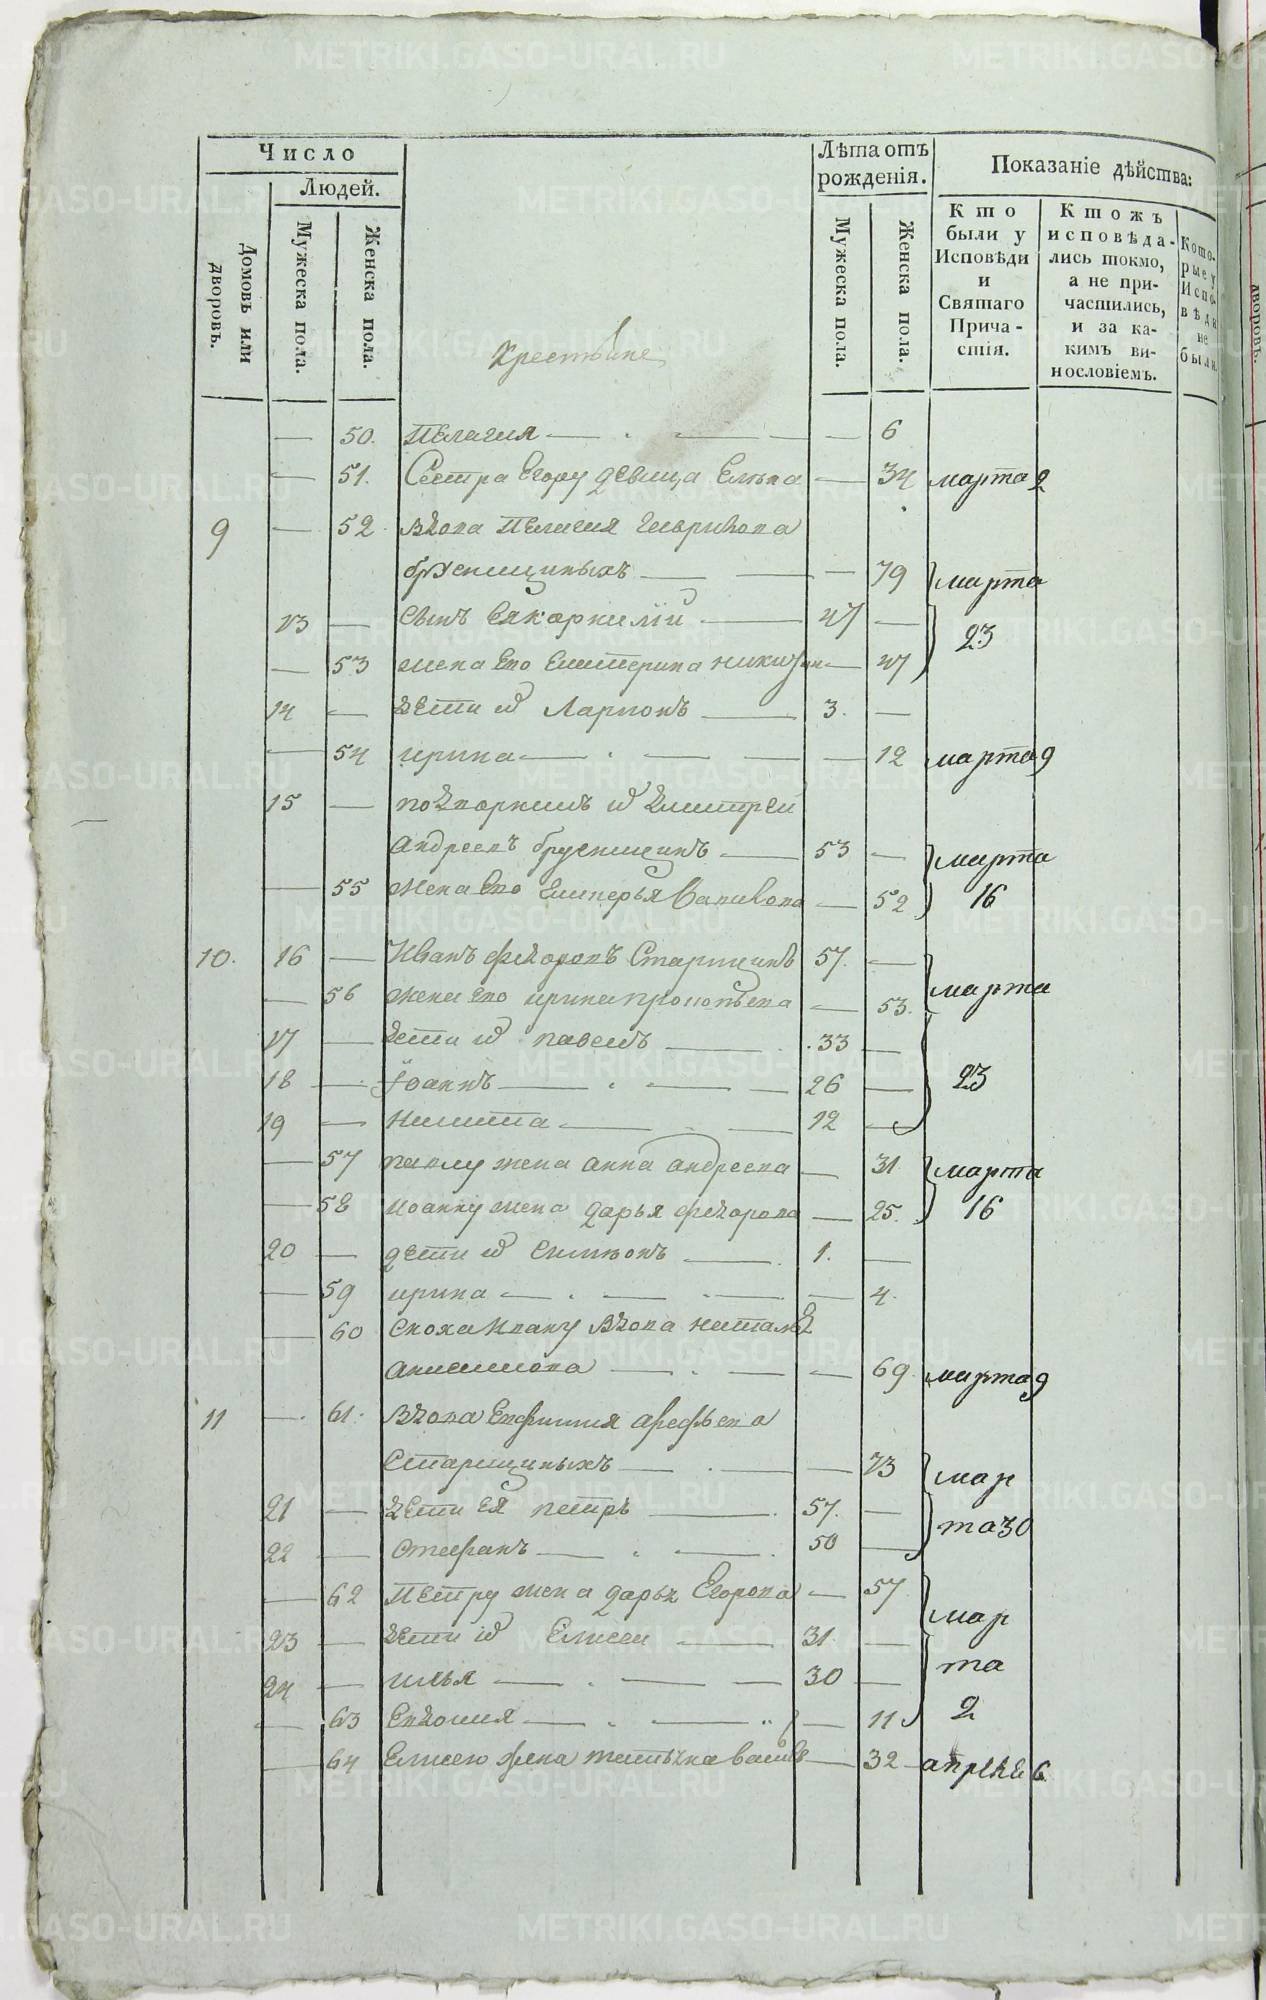 Число
Людей.
Домовъ или дворовъ.
Мужеска пола.
Женска пола.
Крестьяне
Лѣта отъ рожденія.
Мужеска пола.
Женска пола.
Показаніе дѣйства:
Кто были у Исповѣди и Святаго Причастія.
Ктожъ исповѣдались токмо, а не причастились, и за какимъ винословіемъ.
Которые у Исповѣди не были.
— 50. Пелагия — — 6
— 51. Сестра Егору девица Елѣна — 34 марта 2
9 — 52 вдова Пелагия Гаврилова
брусницыныхъ — — 79 марта
13 — сынъ 47 — 23
— 53 жена его Екатерина никити — 47
14 — дети Ларионъ — 3. —
— 54 ирина — — 12 марта 9
15 — подворникъ Дмитрей
Андреевъ брусницинъ — 53 — марта
— 55 жена его Ванивова — 52 16
10. 16 — Иванъ федоровъ Старицинъ 57. —
— 56 жена его ирина прокопьева — 53. марта
17 — дети павелъ — 33 —
18 — Іоаннъ — 26 — 23
19 — Никита — 12 —
— 57 павлу жена анна андреева — 31 марта
— 58 иоанну жена дарья федорова — 25. 16
20 — дети симеонъ — 1. —
— 59 ирина — — 4.
— 60 сноха ивану вдова наталья
анисимова — — 69 марта 9
11 — 61. вдова Евфимия арефьева
Старицыныхъ — — 73 мар
21 — дети ея петръ — 57. — та 30
22 — Стефанъ — 50 —
— 62 Петру жена дарья Егорова — 57 мар
23 — дети Елисей — 31 — та
24 — илья — 30 —
— 63 Евдокия — — 11 2
— 64 Елисею жена татьяна васил — 32 апреля 6
METRIKI.GASO-URAL.RU